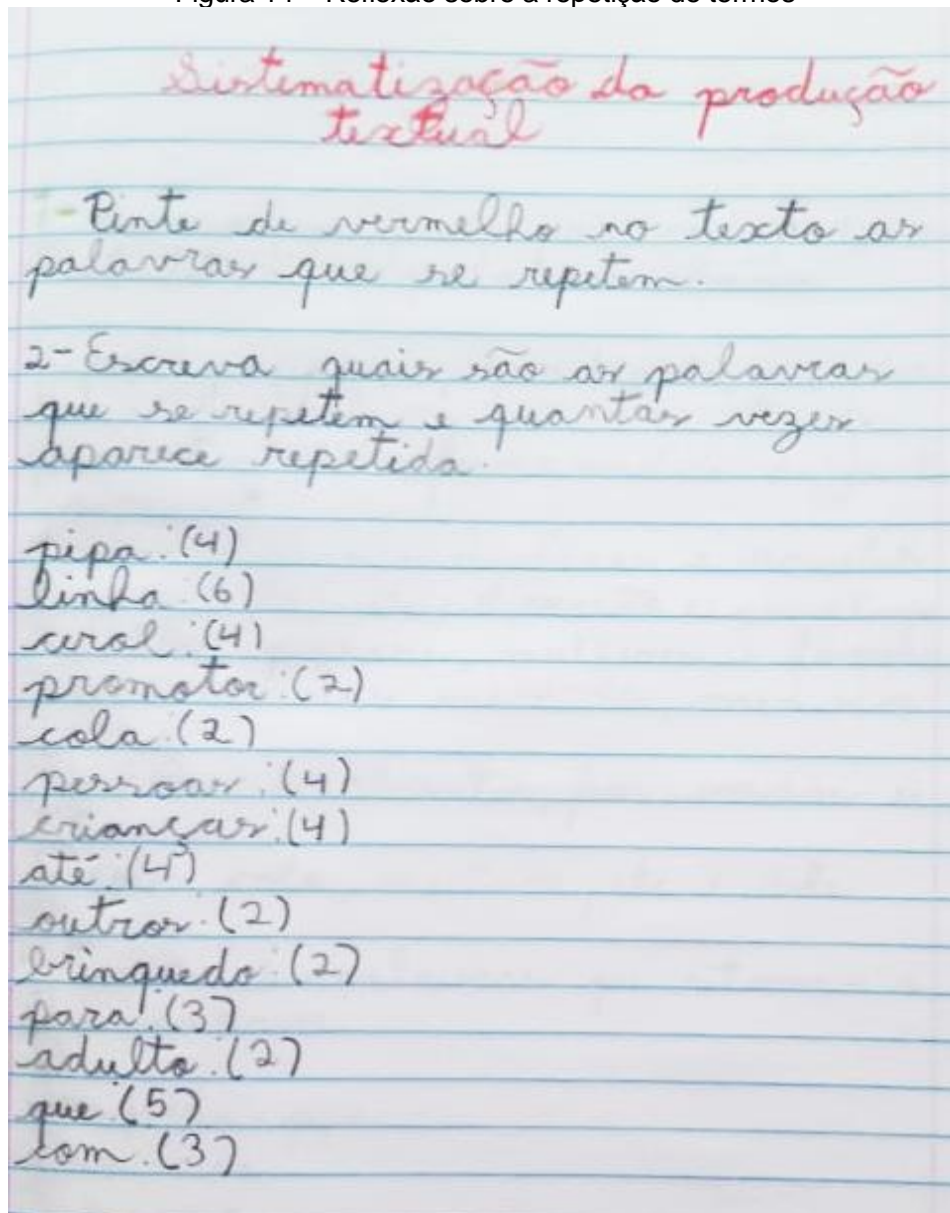 Sistematização da produção
textual
1- Pinte de vermelho no texto as
palavras que se repetem.
2- Escreva quais são as palavras
que se repetem e quantas vezes
aparece repetida.
pipa: (4)
linha: (6)
cerol: (4)
promotor: (2)
cola: (2)
pessoas: (4)
crianças: (4)
até: (4)
outros: (2)
brinquedo: (2)
para: (3)
adulto: (2)
que: (5)
com: (3)